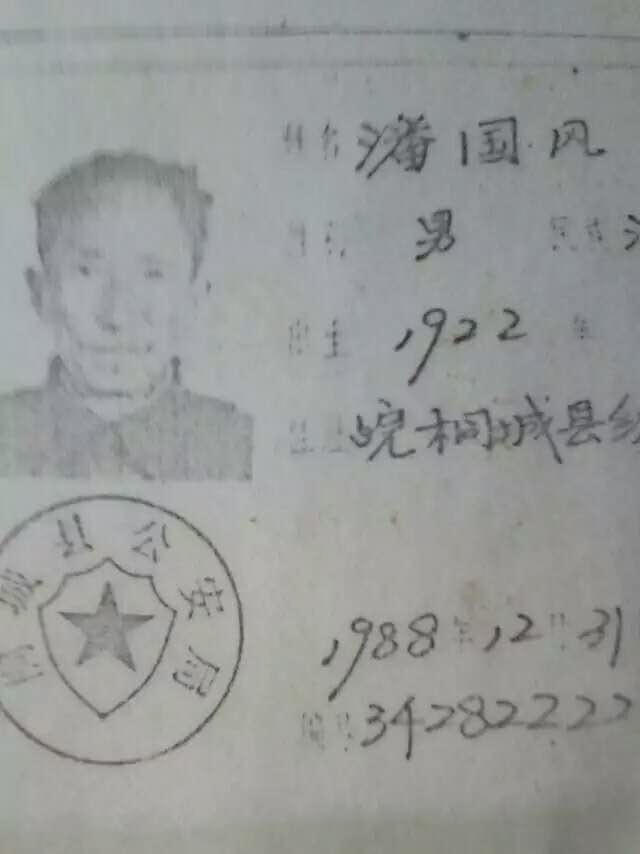 姓名 潘国风
性别 男 民族 汉
出生 1922 年
住址 皖桐城县纺
1988年12月31
编号34282222
公安局